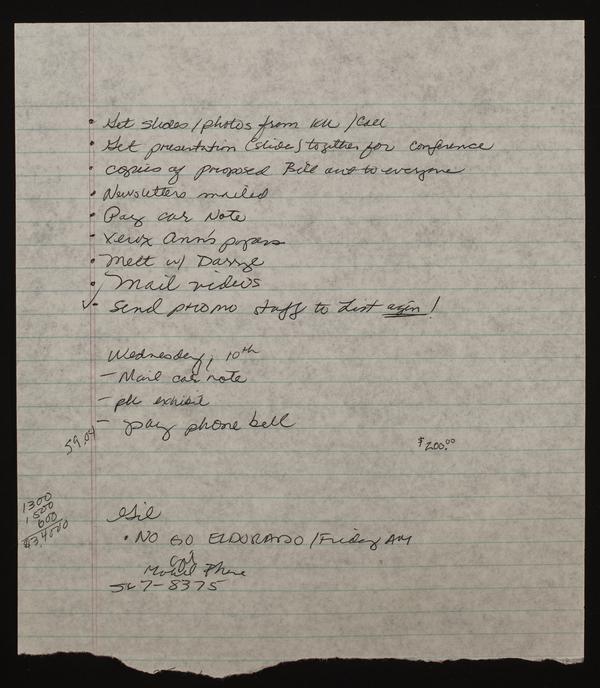 • Get slides/photos from KU /Call
• Get presentation (slides) together for conference
• copies of proposed Bill out to everyone
• Newsletters mailed
• Pay car Note
• Xerox Ann's papers
• Mett w/ Darryl
• Mail videos
✓• Send promo stuff to list again!
Wednesday, 10th
- Mail car note
- exhibit
- pay phone bell
59.04
$200.00
1300
1500
600
$3,4000
Gil
• NO GO ELDORADO/Friday AM
Mobil Phone
567-8375